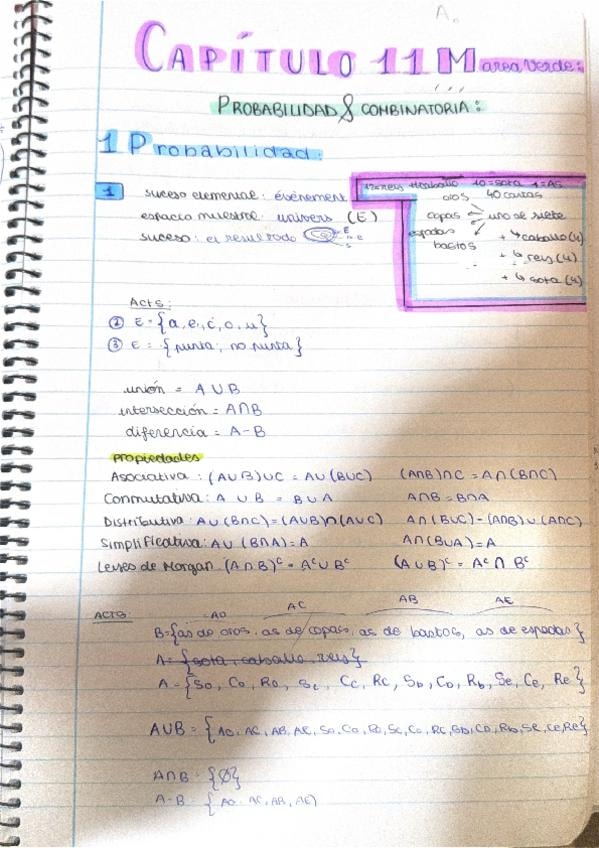 A.
CAPÍTULO 11 Mareaverde:
PROBABILIDAD & COMBINATORIA:
1 Probabilidad:
1 suceso elemental: événement
espacio muestral: univers (E)
suceso: el resultado
12=reis 11=caballo 10=sota 1=As
oros 40 cartas
copas uno de siete
espadas + ↳ caballo (4)
bastos + ↳ reis (4)
+ ↳ sota (4)
Acts:
② E = {a, e, i, o, u}
③ E = {punta, no punta}
unión = A ∪ B
intersección = A∩B
diferencia = A-B
Propiedades
Asociativa: (A∪B)∪C = A∪(B∪C) (A∩B)∩C = A∩(B∩C)
Conmutativa: A ∪ B = B ∪ A A∩B = B∩A
Distributiva: A∪(B∩C)=(A∪B)∩(A∪C) A∩(B∪C)=(A∩B)∪(A∩C)
Simplificativa: A∪(B∩A)=A A∩(B∪A)=A
Leyes de Morgan (A∩B)ᶜ = Aᶜ∪Bᶜ (A∪B)ᶜ = Aᶜ∩Bᶜ
ACTS: AO AC AB AE
B={as de oros, as de copas, as de bastos, as de espadas}
A= {sota, caballo, reis}
A={So, Co, Ro, Sc, Cc, Rc, Sb, Cb, Rb, Se, Ce, Re}
A∪B = {AO, AC, AB, AE, So, Co, Ro, Sc, Cc, Rc, Sb, Cb, Rb, Se, Ce, Re}
A∩B = {Ø}
A-B = {AO, AC, AB, AE}